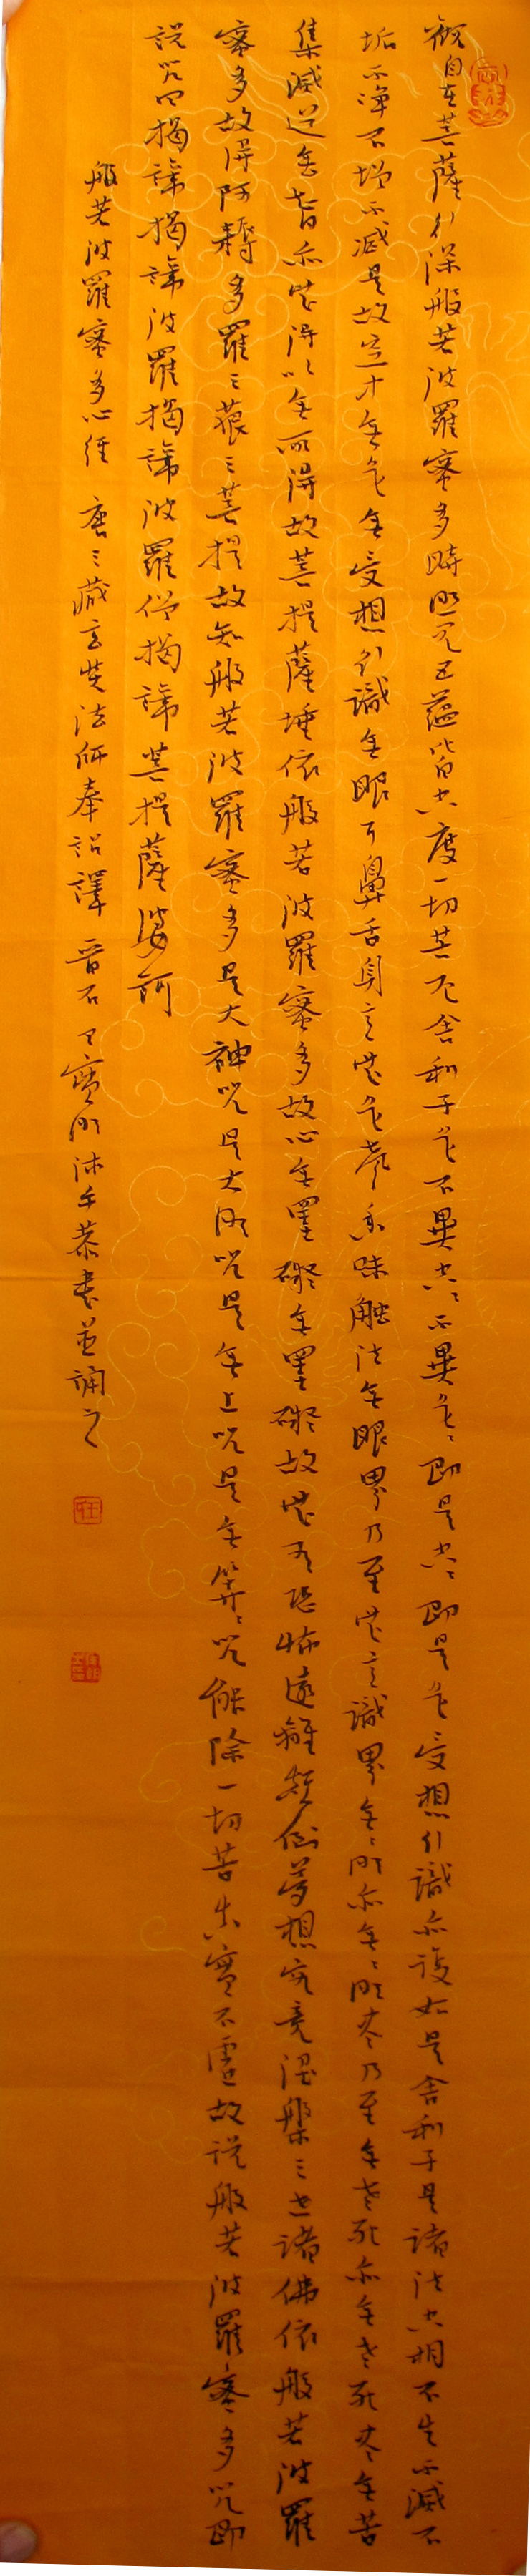 觀自在菩薩行深般若波羅蜜多時照見五蘊皆空度一切苦厄舍利子色不異空〻不異色〻即是空〻即是色受想行識亦復如是舍利子是諸法空相不生不滅不
垢不淨不增不減是故空中無色無受想行識無眼耳鼻舌身意無色聲香味觸法無眼界乃至無意識界無〻明亦無〻明盡乃至無老死亦無老死盡無苦
集滅道無智亦無得以無所得故菩提薩埵依般若波羅蜜多故心無罣礙無罣礙故無有恐怖遠離顛倒夢想究竟涅槃三世諸佛依般若波羅
蜜多故得阿耨多羅三藐三菩提故知般若波羅蜜多是大神咒是大明咒是無上咒是無等〻咒能除一切苦真實不虛故說般若波羅蜜多咒即
說咒曰揭諦揭諦波羅揭諦波羅僧揭諦菩提薩婆訶
般若波羅蜜多心經 唐三藏玄奘法師奉詔譯 晉石 寶明沐手恭書並誦之